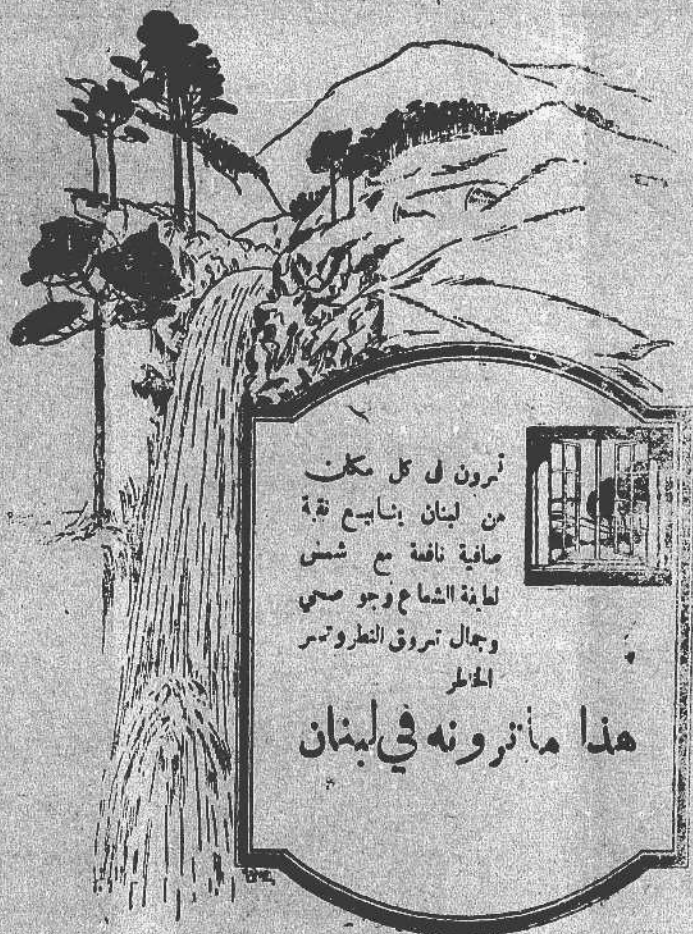 ترون فى كل مكان
من لبنان ينابيع نقية
صافية نافعة مع شمس
لطيفة الشعاع وجو صحي
وجمال تروق النظر وتسر
الخاطر
هذا ما ترونه في لبنان